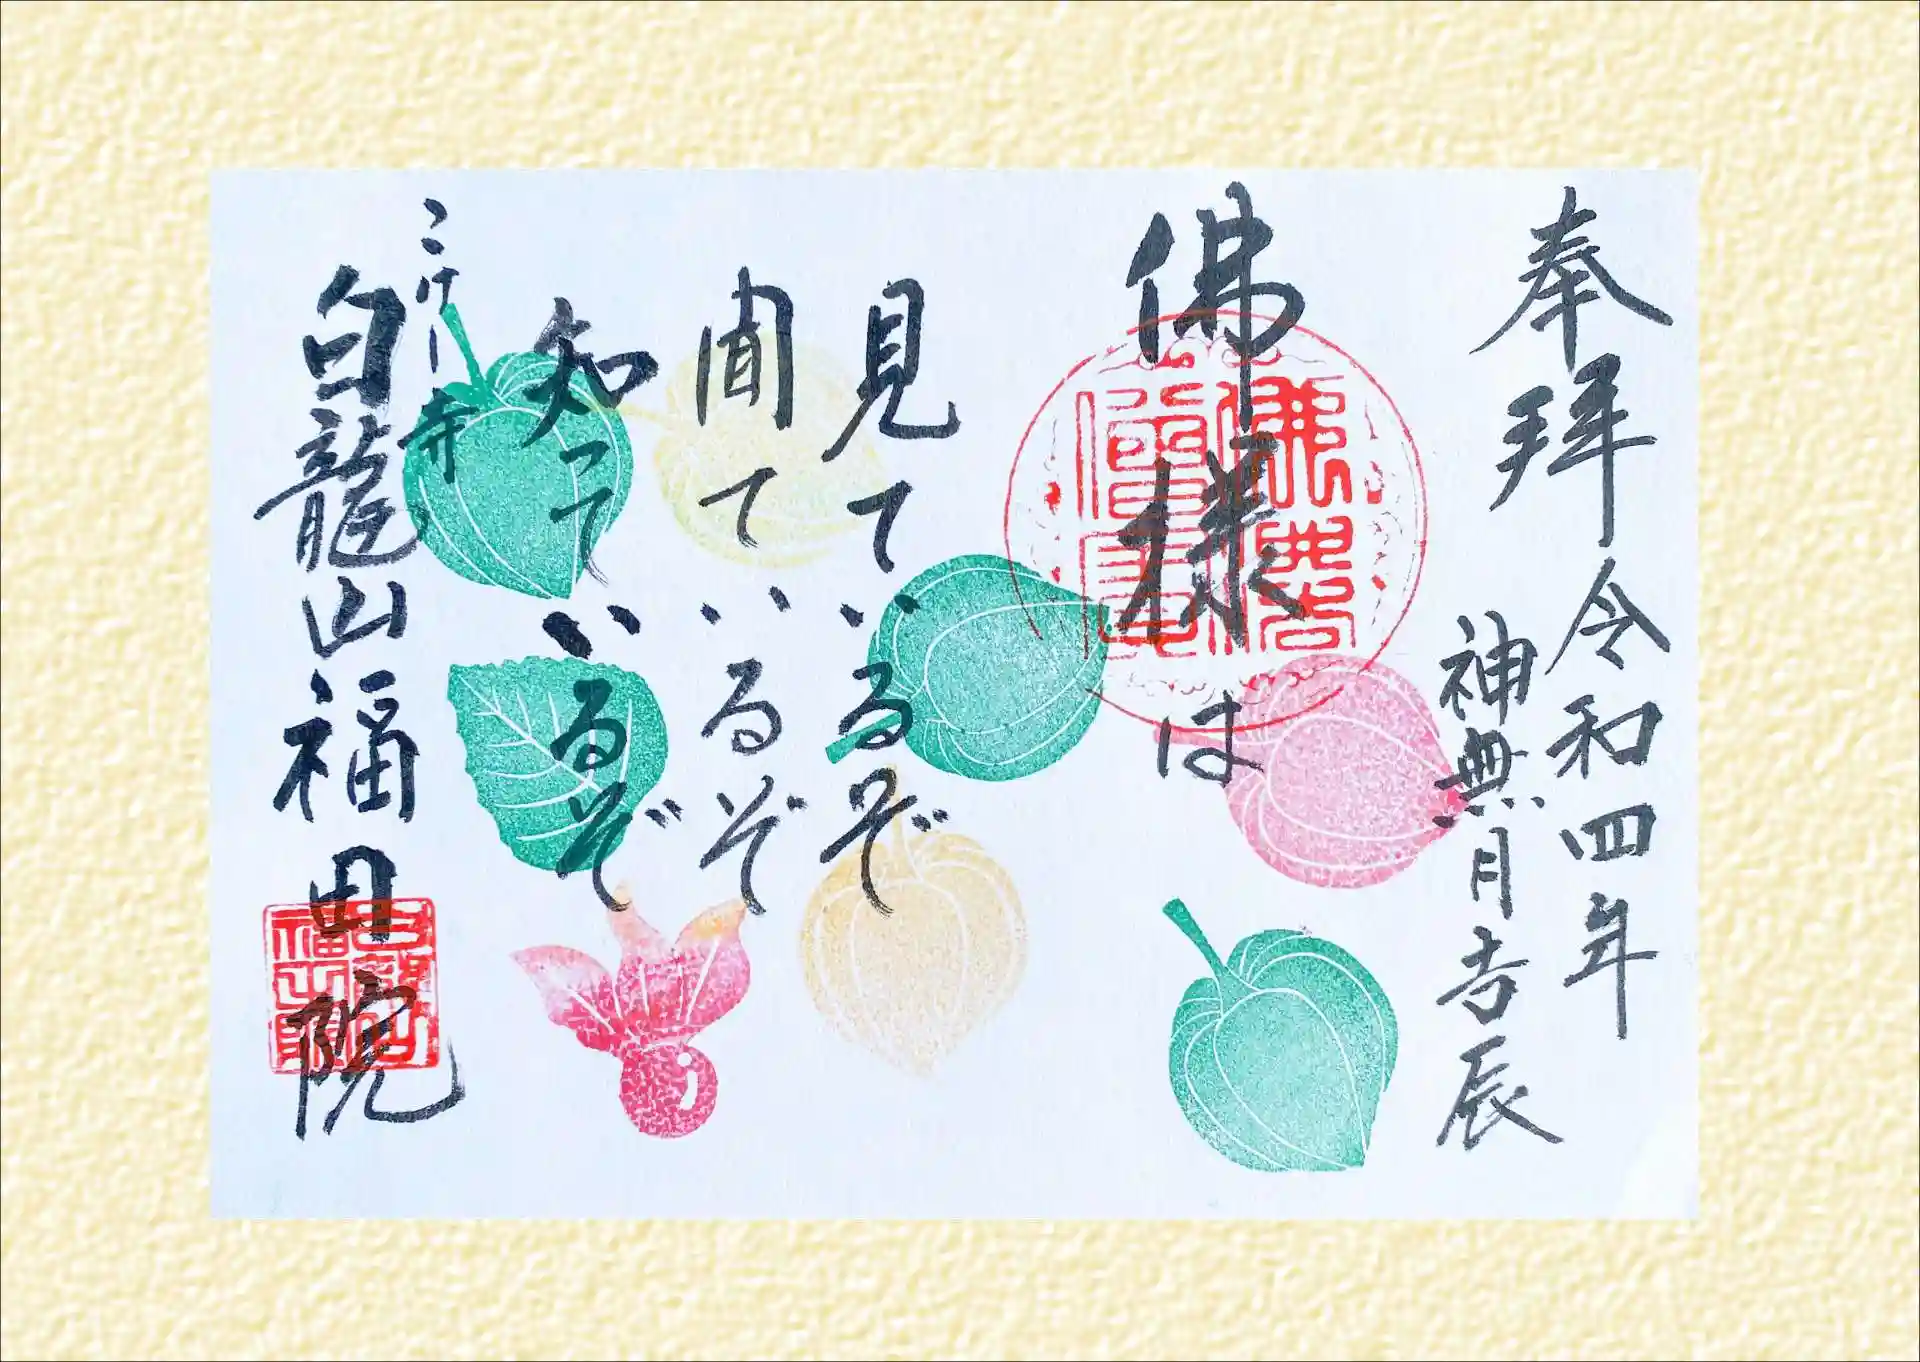 奉拜
令和四年
神無月吉辰
佛様は
見ているぞ
聞いているぞ
知っているぞ
こけし寺
白龍山福田院